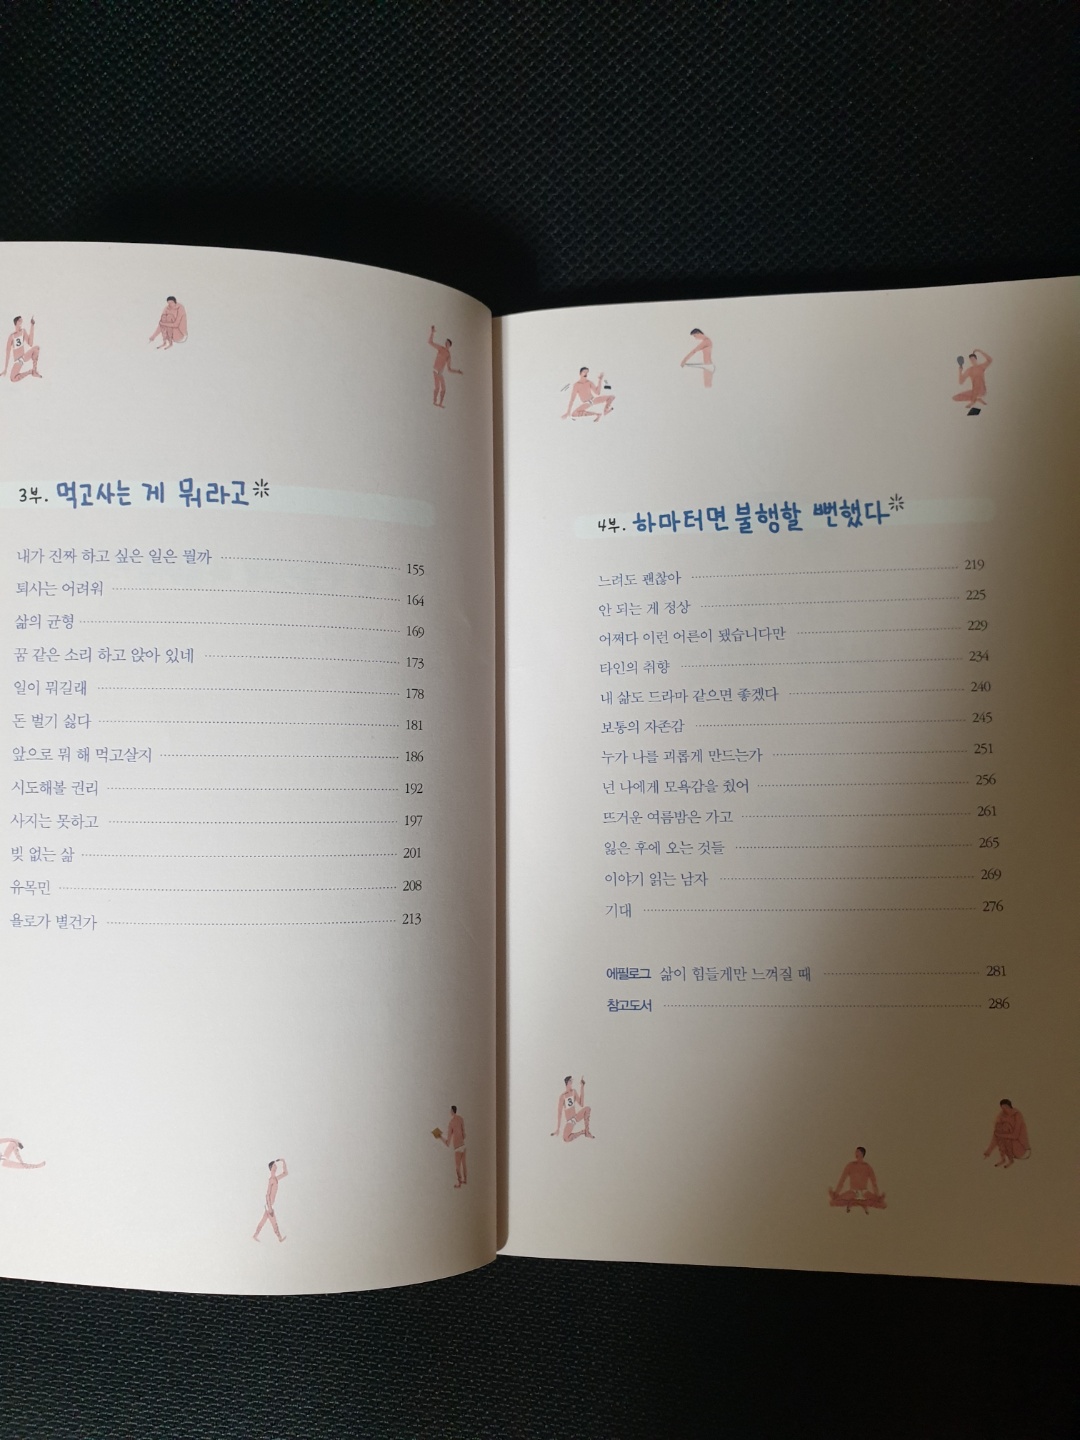 3부. 먹고사는 게 뭐라고
내가 진짜 하고 싶은 일은 뭘까 155
퇴사는 어려워 164
삶의 균형 169
꿈 같은 소리 하고 앉아 있네 173
일이 뭐길래 178
돈 벌기 싫다 181
앞으로 뭐 해 먹고살지 186
시도해볼 권리 192
사지는 못하고 197
빚 없는 삶 201
유목민 208
욜로가 별건가 213
4부. 하마터면 불행할 뻔했다
느려도 괜찮아 219
안 되는 게 정상 225
어쩌다 이런 어른이 됐습니다만 229
타인의 취향 234
내 삶도 드라마 같으면 좋겠다 240
보통의 자존감 245
누가 나를 괴롭게 만드는가 251
넌 나에게 모욕감을 줬어 256
뜨거운 여름밤은 가고 261
잃은 후에 오는 것들 265
이야기 읽는 남자 269
기대 276
에필로그 삶이 힘들게만 느껴질 때 281
참고도서 286
3
3